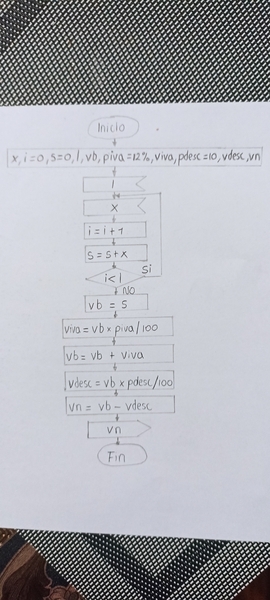 Inicio
x, i=0, s=0, l, vb, piva=12%, viva, pdesc=10, vdesc, vn
l
x
i = i + 1
s = s + x
i < l
si
NO
vb = s
viva = vb x piva/100
vb = vb + viva
vdesc = vb x pdesc/100
vn = vb - vdesc
vn
Fin